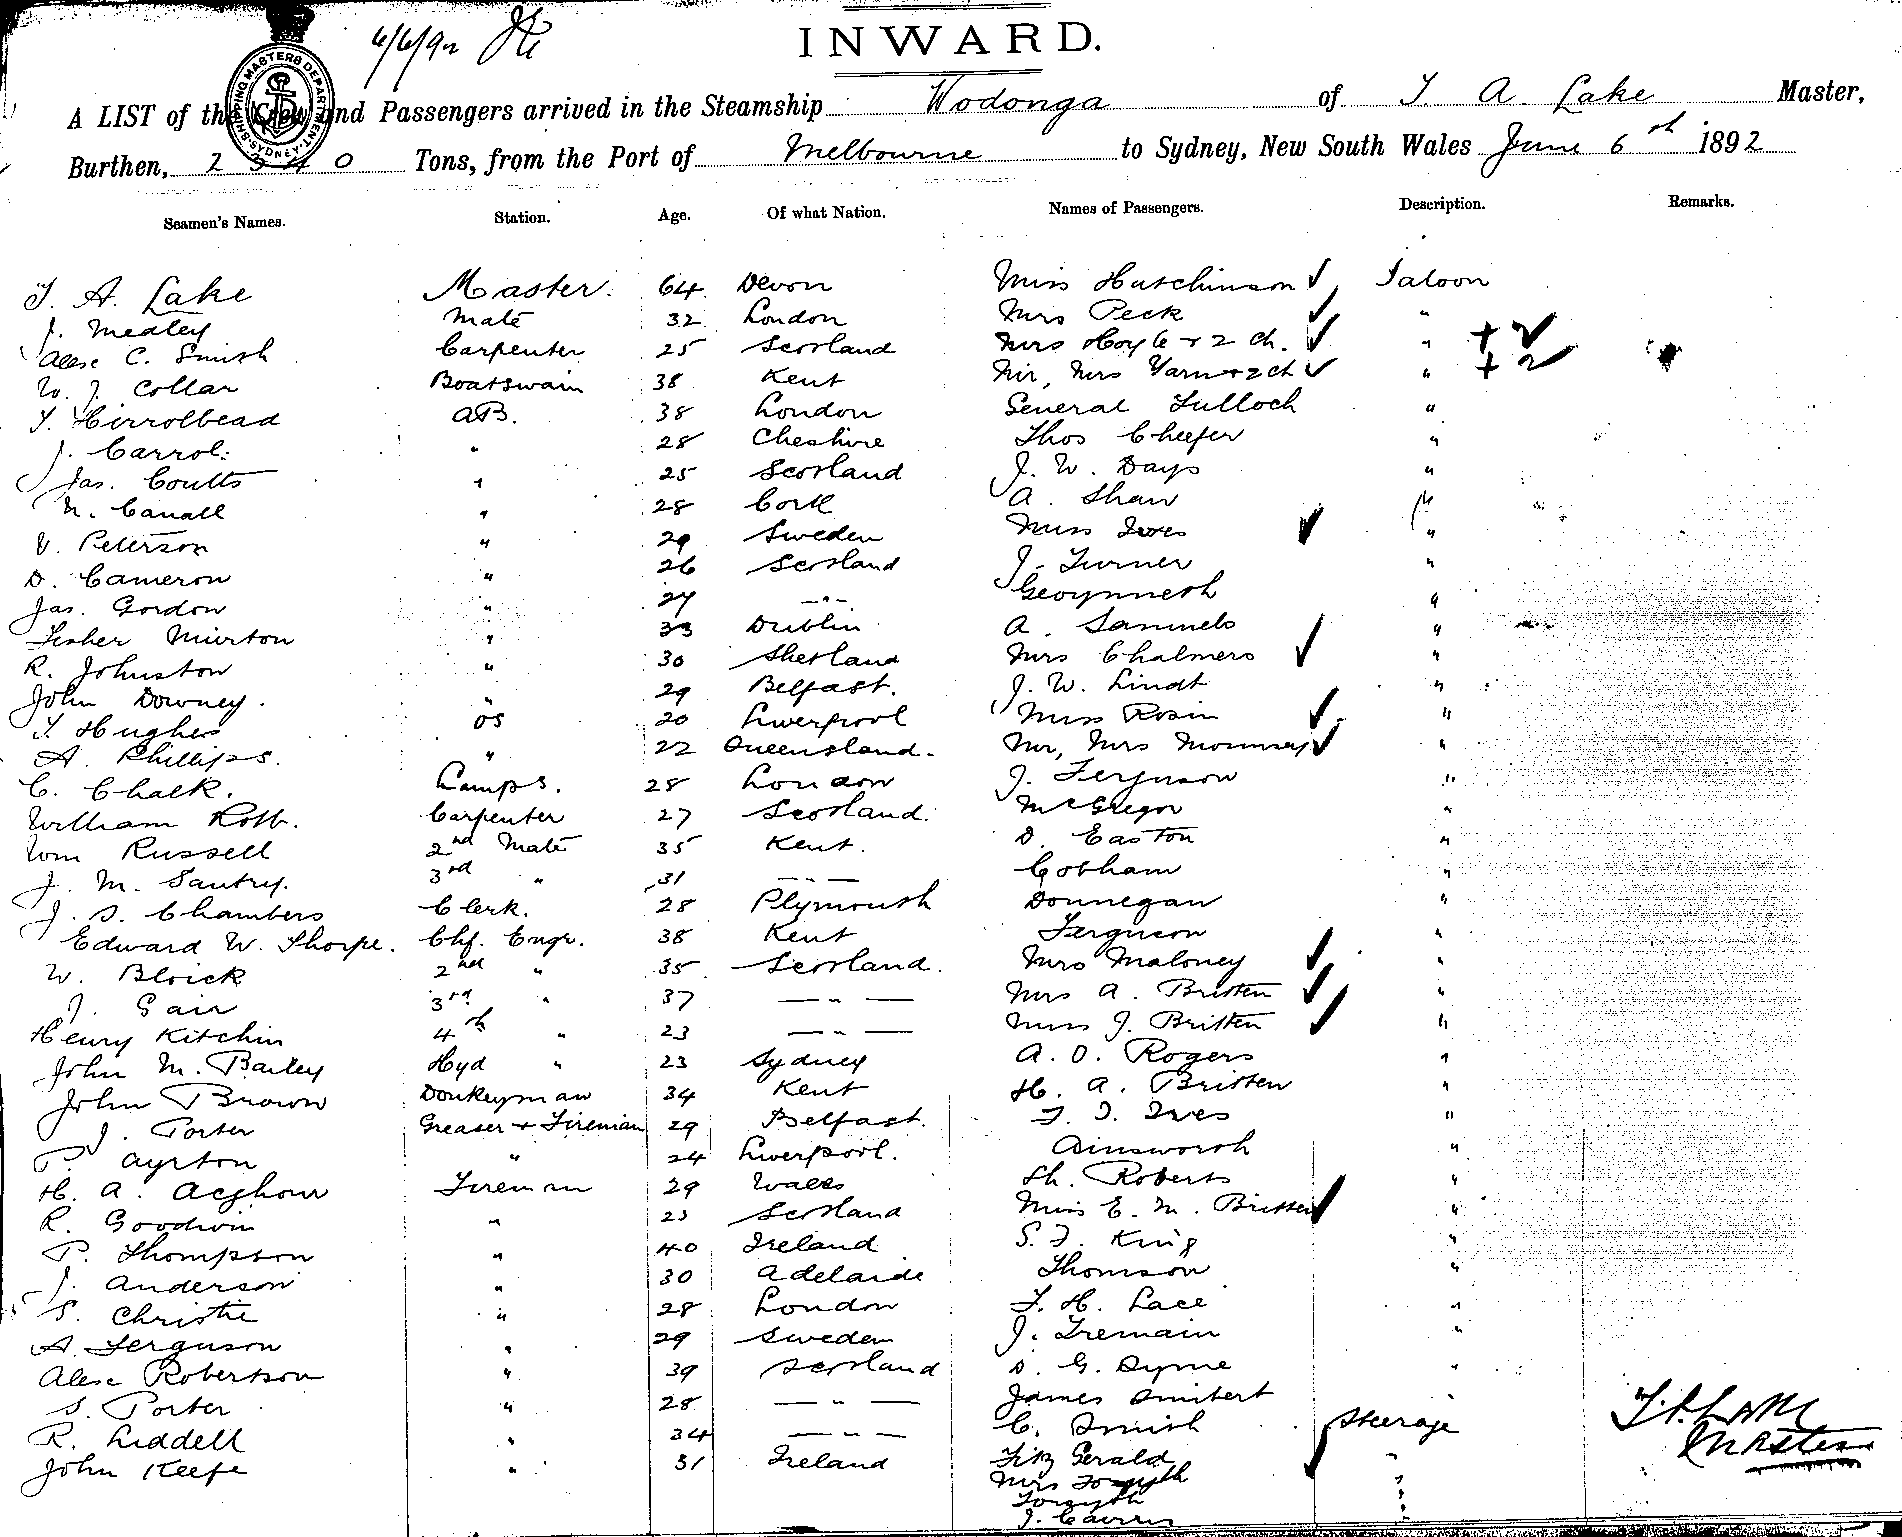 6/6/92
INWARD.
SHIPPING MASTERS DEPARTMENT SYDNEY
A LIST of the Crew and Passengers arrived in the Steamship Wodonga of T A. Lake Master,
Burthen, 2340 Tons, from the Port of Melbourne to Sydney, New South Wales June 6th 1892
Seamen's Names. Station. Age. Of what Nation. Names of Passengers. Description. Remarks.
T. A. Lake Master. 64 Devon Miss Hutchinson Saloon
J. Medley Mate 32 London Mrs Peck "
C. Smith Carpenter 25 Scotland Mrs + 2 ch. " + 2
W. J. Collar Boatswain 38 Kent Mr, Mrs + 2 ch " + 2
T. AB. 38 London General Tulloch "
J. Carrol: " 28 Cheshire Thos "
Jas. Coutts " 25 Scotland J. W. Days "
" 28 Cork A. Shaw "
V. Peterson " 29 Sweden Miss Ives "
D. Cameron " 26 Scotland J. Turner "
Jas. Gordon " 27 — " — "
Murton " 33 Dublin A. Samuels "
R. Johnston " 30 Shetland Mrs Chalmers "
John Downey. " 29 Belfast. J. W. Lindt "
T Hughes OS 20 Liverpool Miss Rosin "
A. Phillips. " 22 Queensland. Mr, Mrs "
C. Chalk. Lamps. 28 London J. Ferguson "
William Carpenter 27 Scotland. McGregor "
Wm Russell 2nd Mate 35 Kent. D. Easton "
J. M. Santry. 3rd " 31 — " — Cobham "
J. S. Chambers Clerk. 28 Plymouth Donnegan "
Edward W. Thorpe. Chf. Engr. 38 Kent Ferguson "
W. Blrick 2nd " 35 Scotland. Mrs Maloney "
J. Gair 3rd " 37 — " — Mrs A. Britten "
Henry Kitchin 4th " 23 — " — Miss J. Britten "
John M. Bailey Hyd " 23 Sydney A. O. Rogers "
John Brown Donkeyman 34 Kent H. A. Britten "
J. Porter Greaser + Fireman 29 Belfast. Ives "
P. Ayrton " 24 Liverpool. Ainsworth "
H. A. Fireman 29 Wales Roberts "
R. Goodwin " 23 Scotland Miss E. M. Britten "
P. Thompson " 40 Ireland King "
J. Anderson " 30 Adelaide Thomson "
S. Christie " 28 London Lace "
A. Ferguson " 29 Sweden J. Tremain "
Robertson " 39 Scotland D. G. "
S. Porter " 28 — " — James "
R. Liddell " 34 — " — C. Smith Steerage
John Keefe " 31 Ireland Fitz Gerald "
Mrs Forsyth "
Forsyth "
J. Cairns "
Master